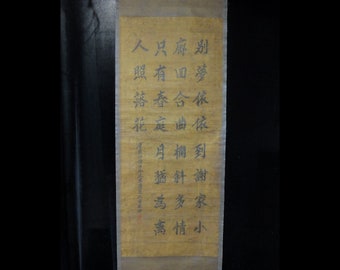 別夢依依到謝家小
廊回合曲欄斜多情
只有春庭月猶為离
人照落花